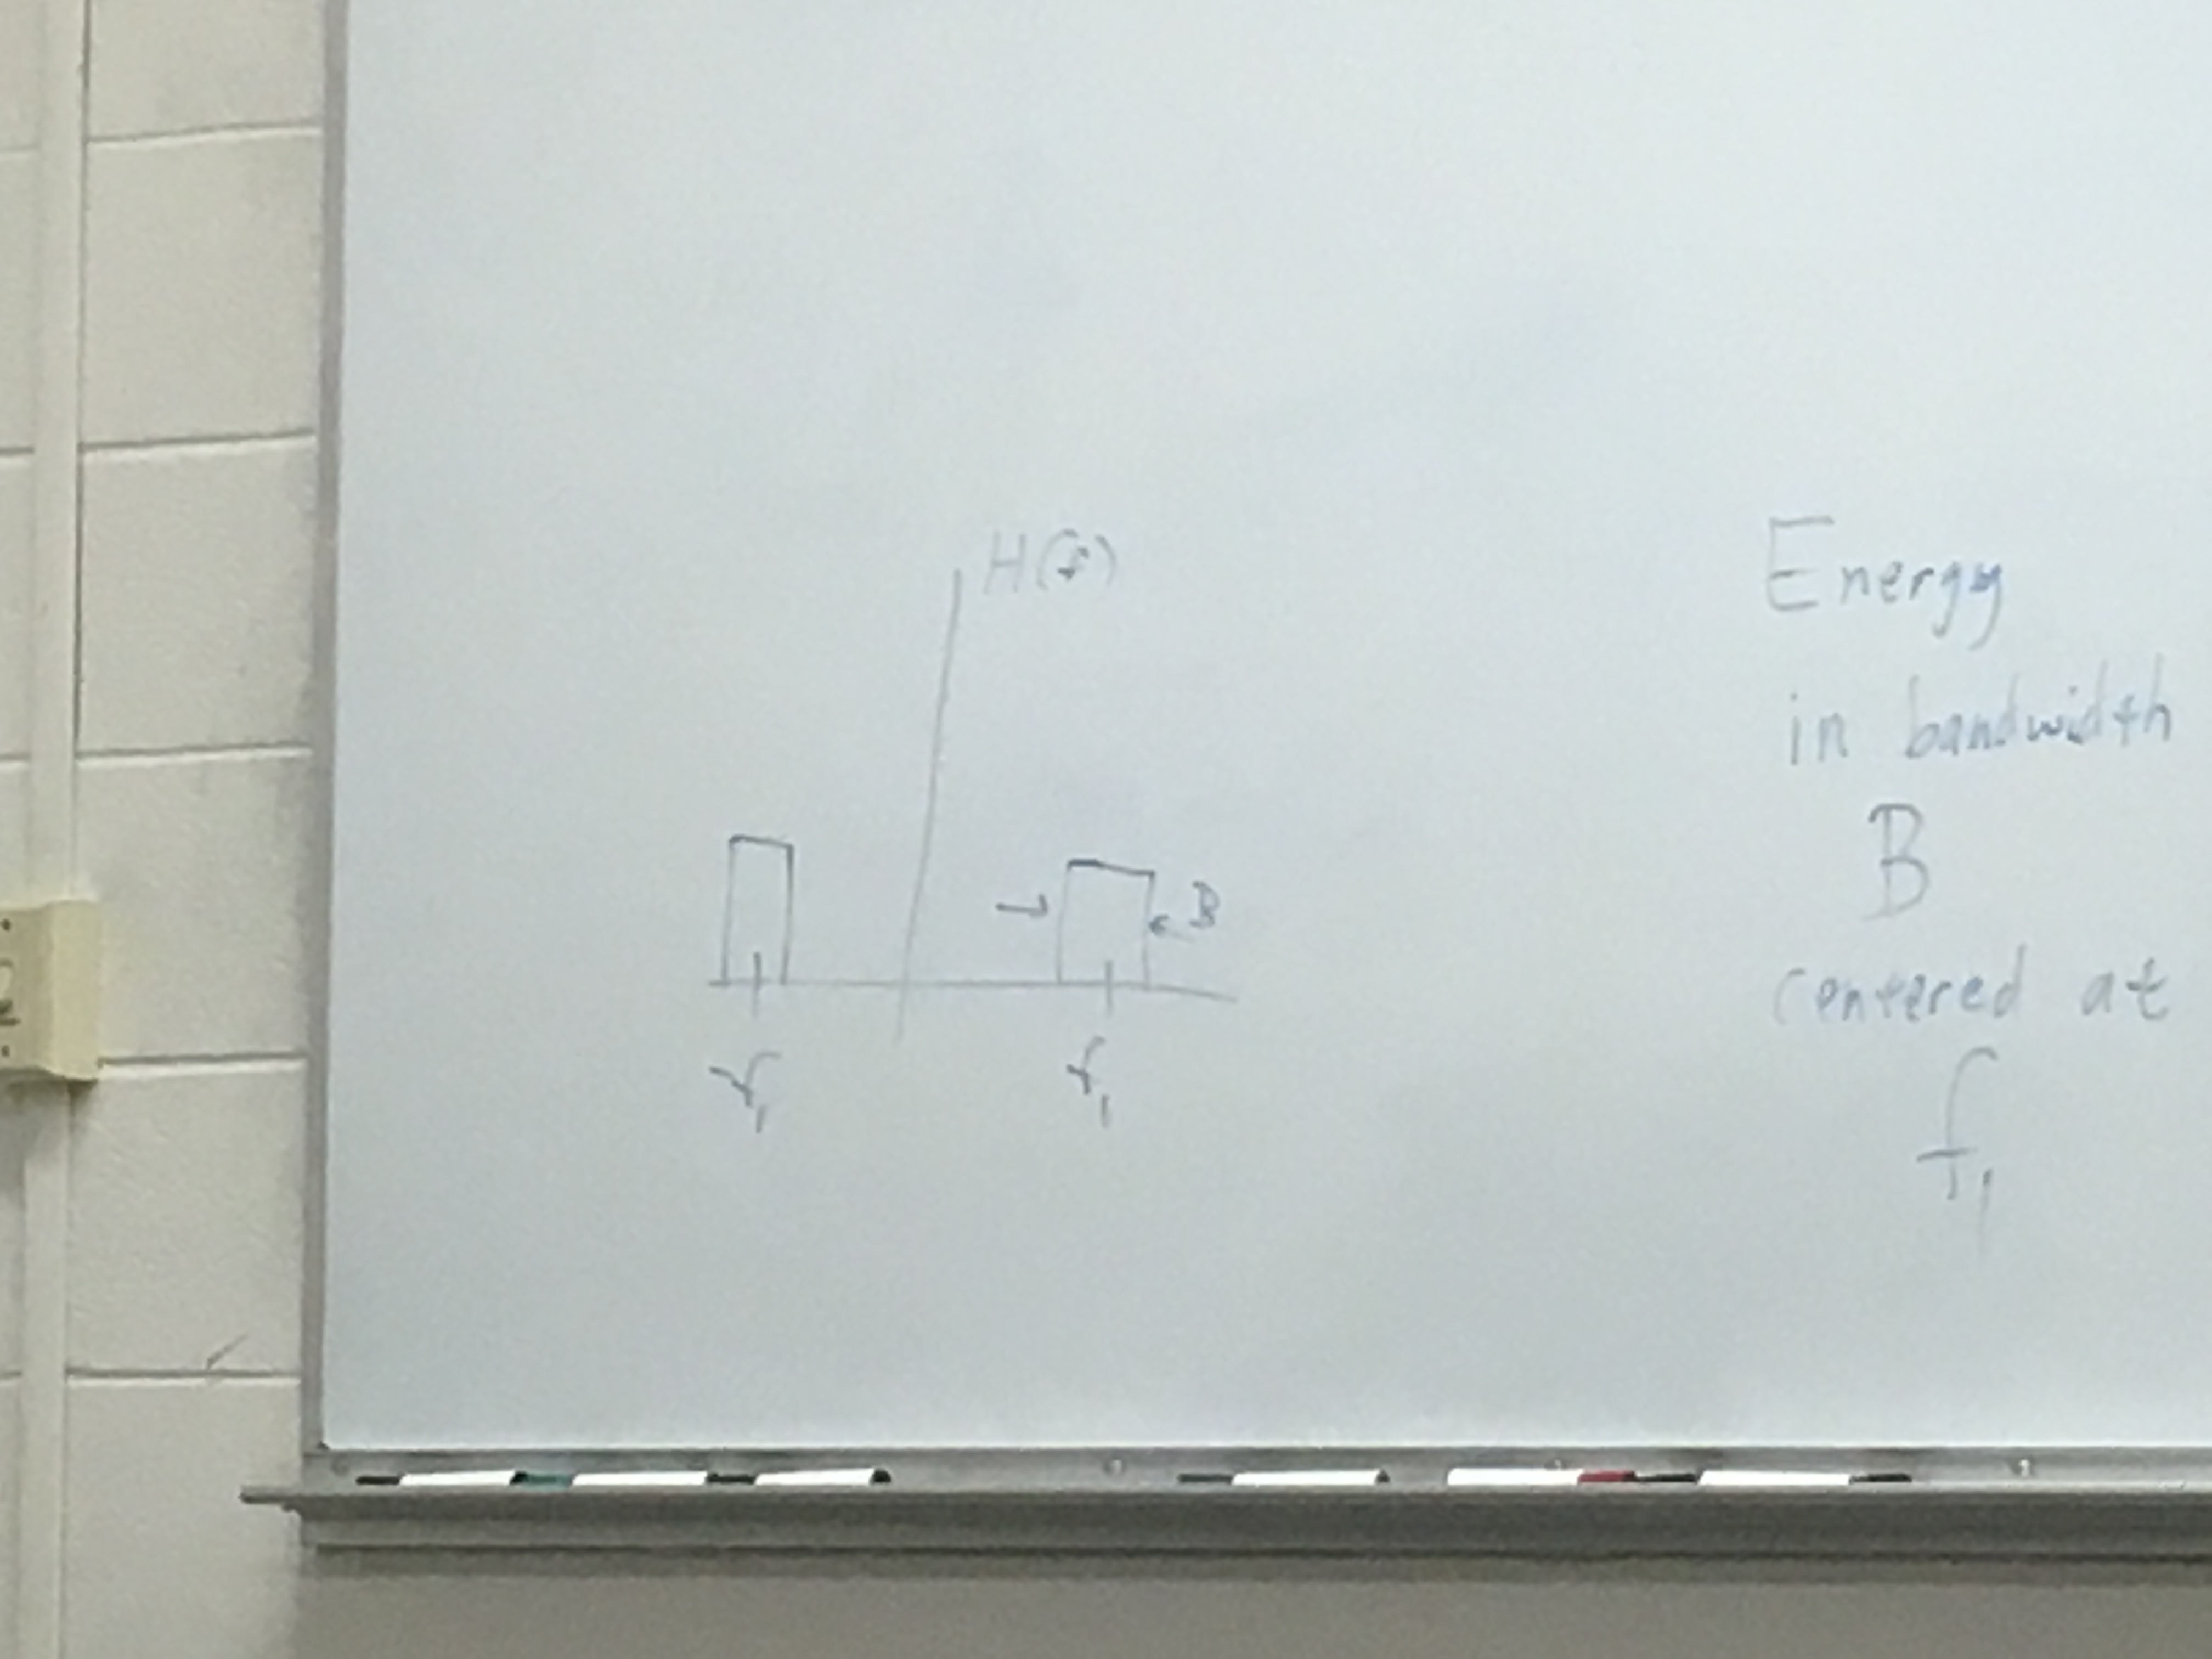 H(f)
B
-f₁
f₁
Energy
in bandwidth
B
centered at
f₁